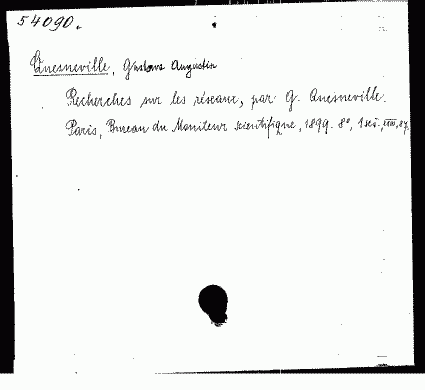 54090.
Quesneville, Gustave Augustin
Recherches sur les réseaux, par G. Quesneville.
Paris, Bureau du Moniteur scientifique, 1899. 8°,